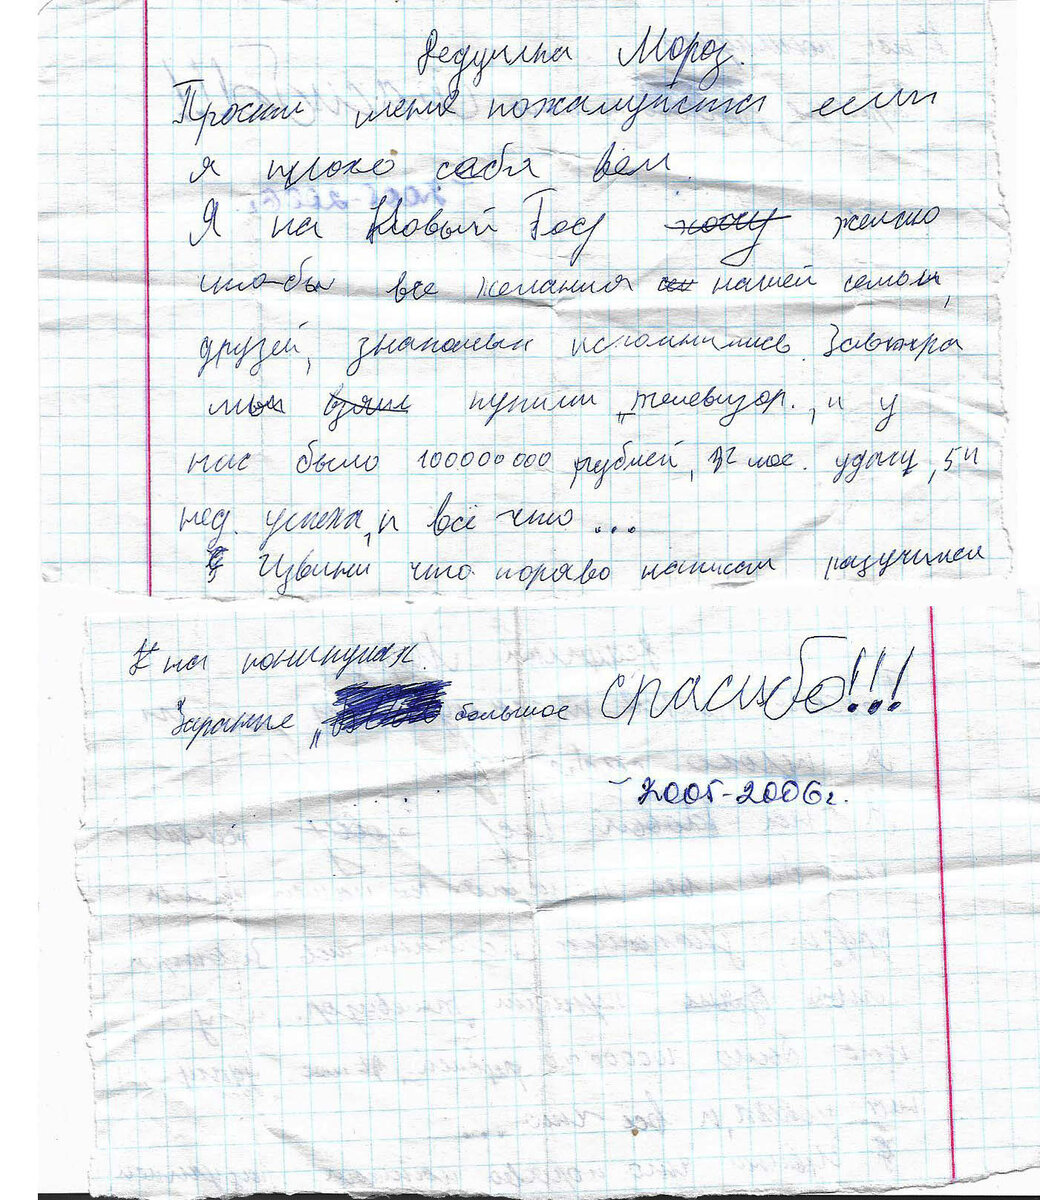 Дедушка Мороз.
Прости меня пожалуйста если
я плохо себя вёл.
Я на Новый Год хочу желаю
что-бы все желания нашей семьи,
друзей, знакомых исполнились. Завтра
мы взяли купили „телевизор., и у
нас было 100000000 рублей, 12 мес. удачи, 54
нед. успеха, и всё что ...
Извини что коряво написал разучился
на каникулах.
Заранее „ большое спасибо!!!
2005-2006г.